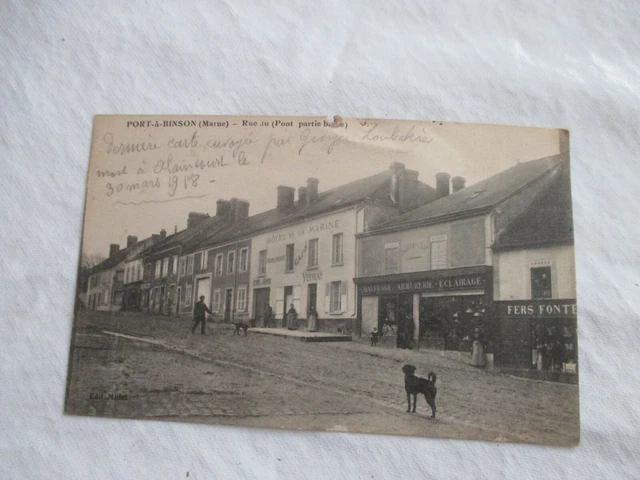 PORT-à-BINSON (Marne) - Rue du (Pont partie basse)
Dernière carte envoyée par Georges
mort à le
30 mars 1918 -
HÔTEL DE LA MARINE
VERNET
CHAUFFAGE - ARMURERIE - ECLAIRAGE
FERS FONTE
Edit.